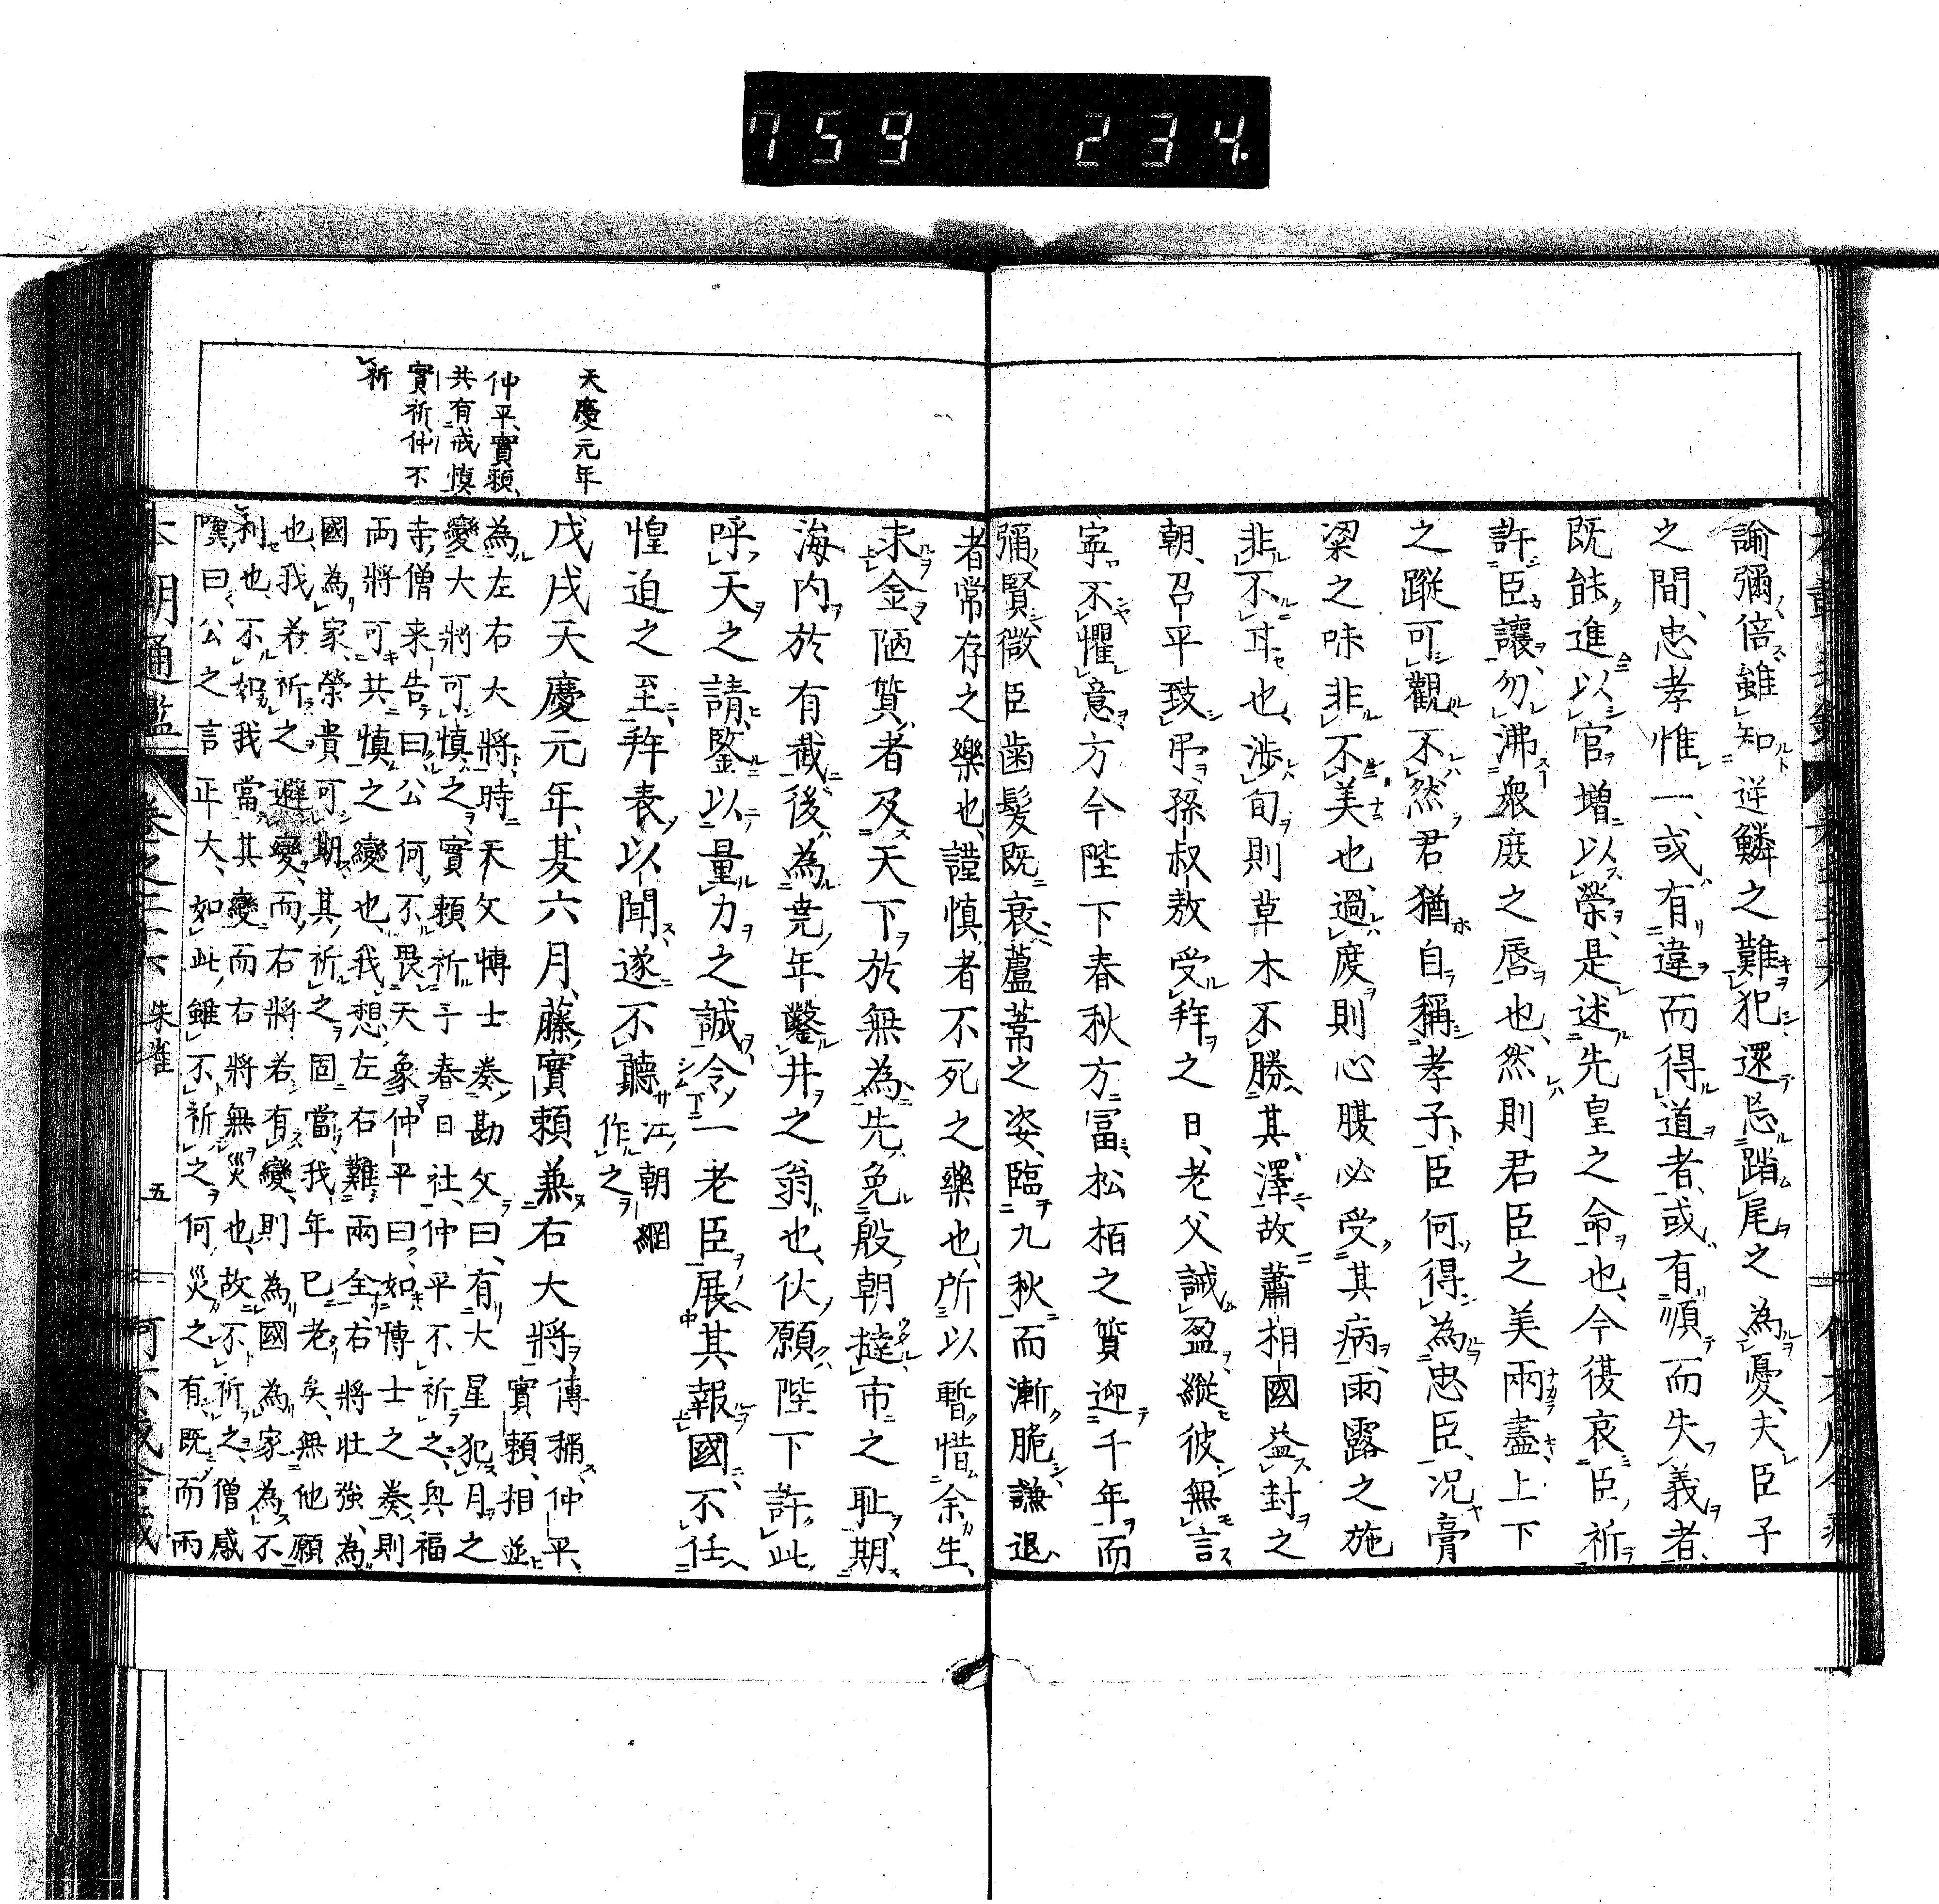 759 234.
諭彌倍雖知逆鱗之難犯還忘踏尾之為憂夫臣子
之間忠孝惟一或有違而得道者或有順而失義者
既能進以官増以榮是述先皇之命也今復哀臣祈
許臣讓勿沸衆庶之唇也然則君臣之美兩盡上下
之蹤可觀不然君猶自稱孝子臣何得為忠臣况膏
粱之味非不美也過度則心腹必受其病雨露之施
非不甘也渉旬則草木不勝其澤故蕭相國益封之
朝召平致弔孫叔敖受拜之日老父誡盈縱彼無言
寧不懼意方今陛下春秋方富松栢之質迎千年而
彌賢微臣齒髪既衰蘆葦之姿臨九秋而漸脆謙退
者常存之樂也謹慎者不死之藥也所以暫惜余生
求金陋質者及天下於無為先免殷朝撻市之耻期
海内於有截後為堯年鑿井之翁也伏願陛下許此
呼天之請鑒以量力之誠令一老臣展其報國不任
惶迫之至拜表以聞遂不聽江朝綱作之
天慶元年
戊戌天慶元年夏六月藤實頼兼右大將傳稱仲平實頼相並
仲平實頼
共有戒慎
實祈仲不
祈
為左右大將時天文博士奏勘文曰有大星犯月之
變大將可慎之實頼祈于春日社仲平不祈之興福
寺僧来告曰公何不畏天象仲平曰如博士之奏則
兩將可共慎之變也我想左右難兩全右將壮強為
國為家榮貴可期其祈之固當我年已老矣無他願
也我若祈之避變而右將若有變則為國為家為不
利也不如我當其變而右將無災也故不祈之僧感
嘆曰公之言正大如此雖不祈之何災之有既而兩
本朝通鑑 卷之二十六 朱雀 五